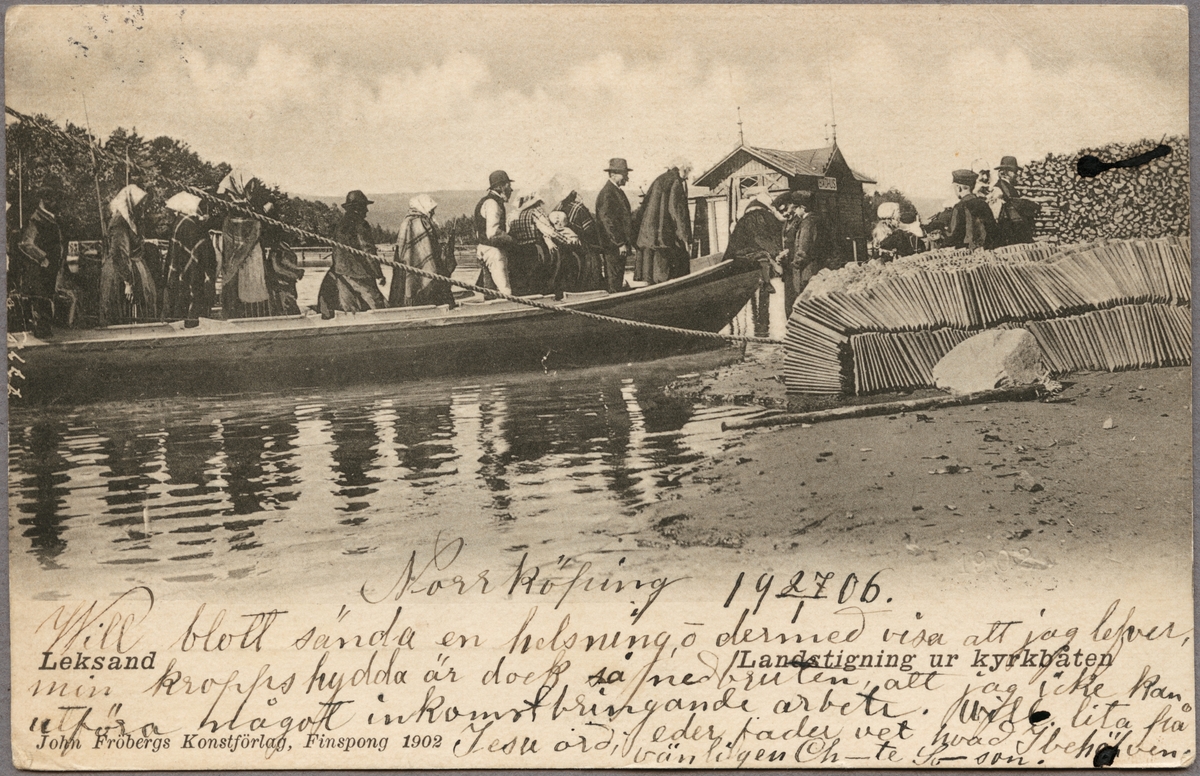 Norrköping 19 27/1 06.
Will blott sända en helsning, o dermed visa att jag lefver,
Leksand
Landstigning ur kyrkbåten
min kroppshydda är dock så nedbruten, att jag icke kan
utföra något inkomstbringande arbete. Will lita på
John Fröbergs Konstförlag, Finspong 1902
Jesu ord, eder fader vet hvad I behöfven.
vänligen Ch—te S—son.